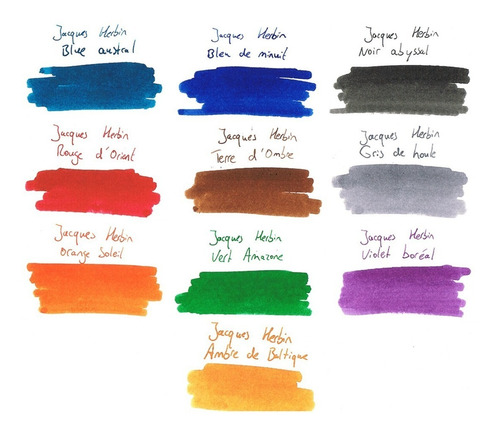 Jacques Herbin
Blue austral
Jacques Herbin
Bleu de minuit
Jacques Herbin
Noir abyssal
Jacques Herbin
Rouge d'Orient
Jacques Herbin
Terre d'Ombre
Jacques Herbin
Gris de houle
Jacques Herbin
Orange Soleil
Jacques Herbin
Vert Amazone
Jacques Herbin
Violet boréal
Jacques Herbin
Ambre de Baltique